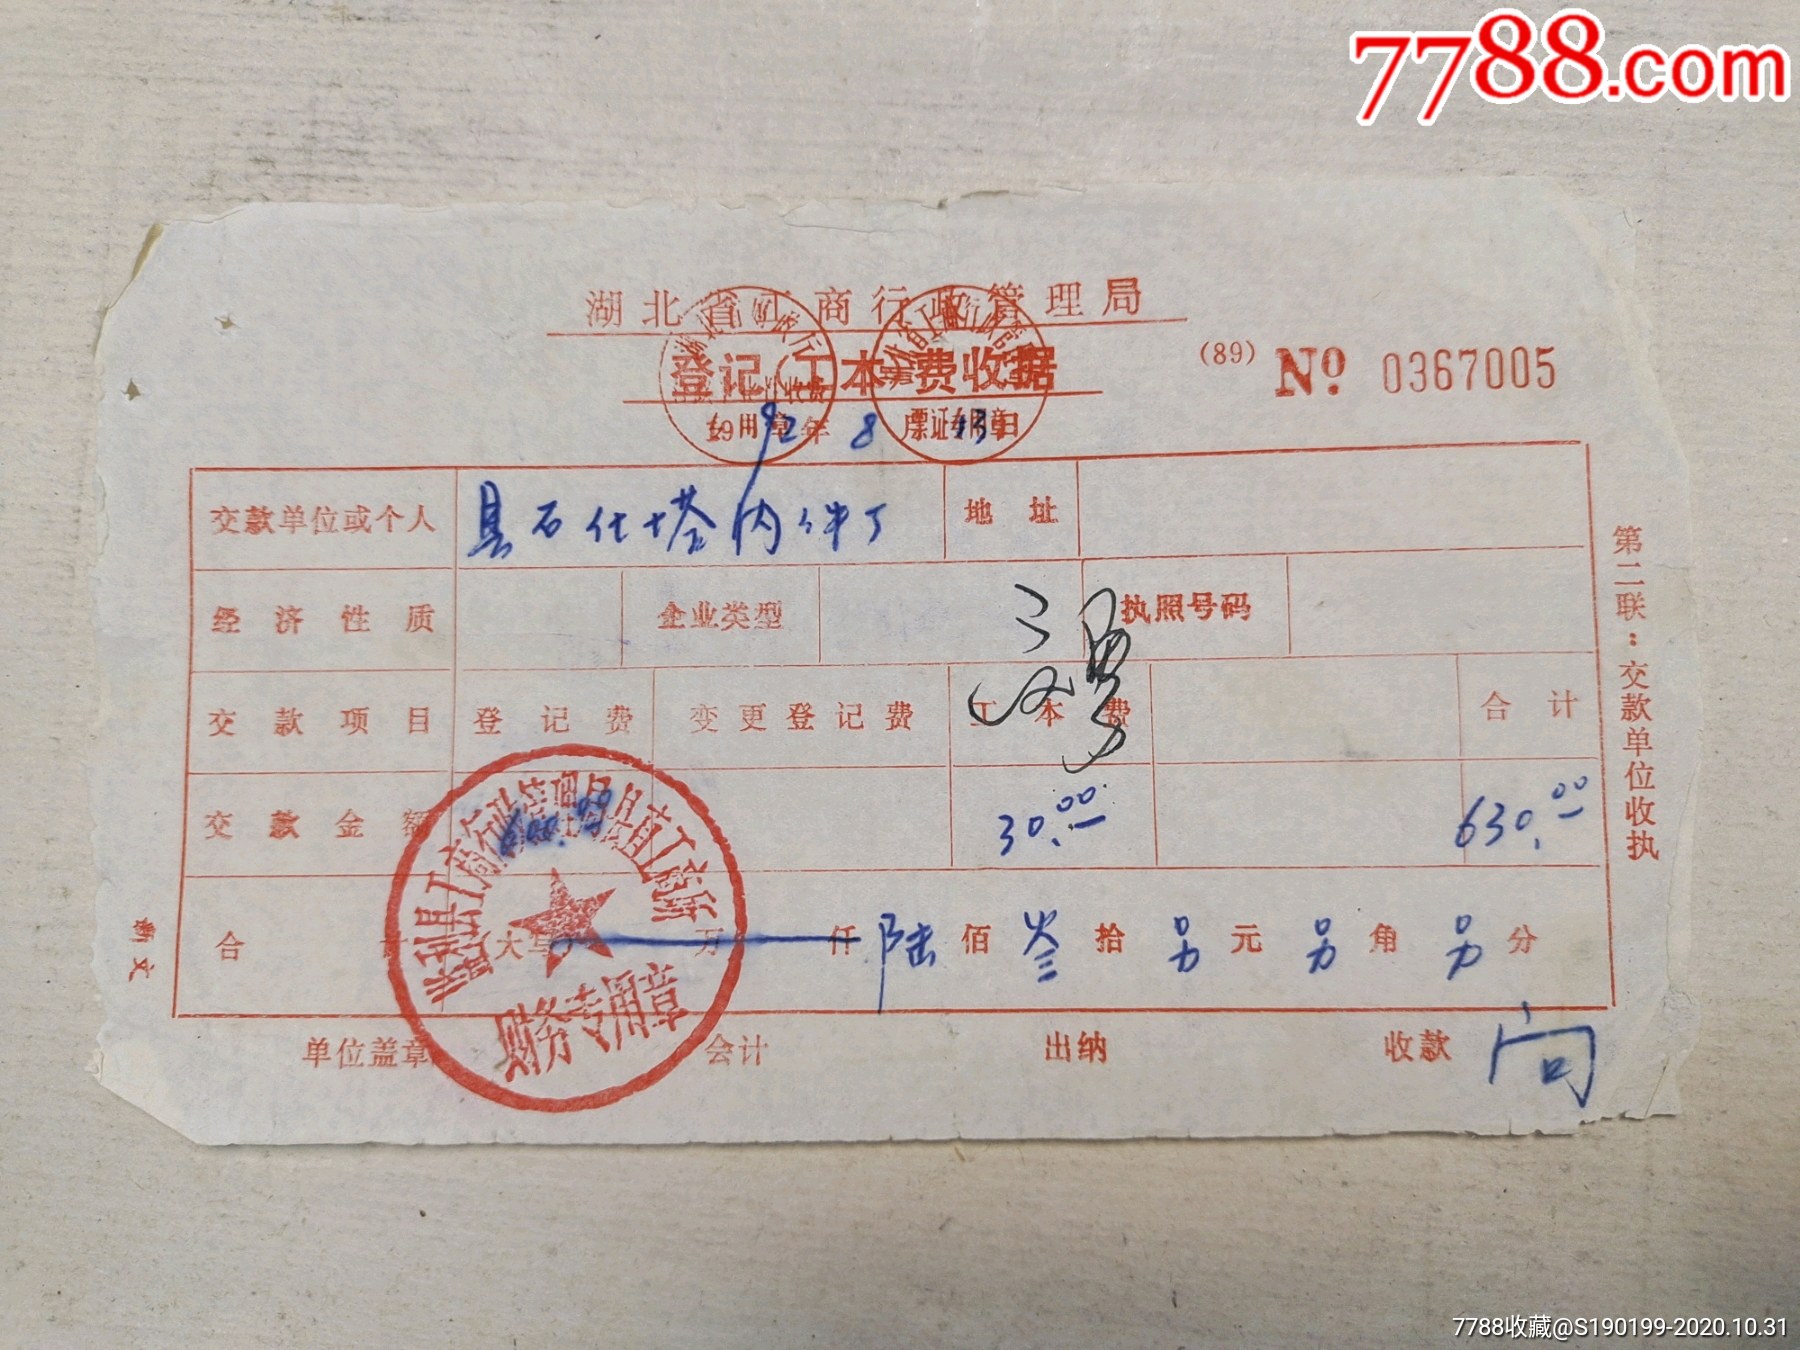 7788.com
湖北省工商行政管理局
登记(工本)费收据
(89) № 0367005
1992年8月13日
票证专用章
交款单位或个人 县石化塔内件厂 地址
经济性质 企业类型 执照号码
交款项目 登记费 变更登记费 工本费 合计
交款金额 600.00 30.00 630.00
合计 大写 万 仟 陆 佰 叁 拾 另 元 另 角 另 分
单位盖章 会计 出纳 收款 向
工商行政管理局县直工商所
财务专用章
第二联：交款单位收执
7788收藏@S190199-2020.10.31